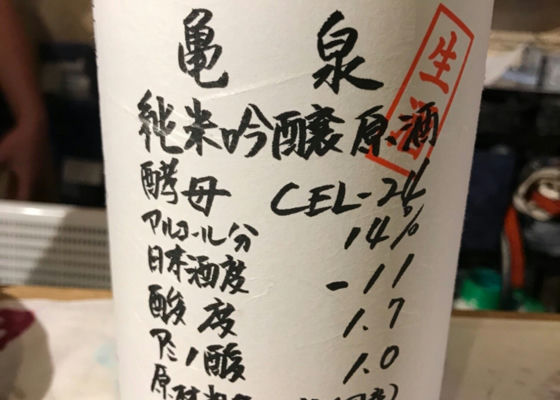 亀泉
生酒
純米吟醸原酒
酵母 CEL-24
アルコール分 14%
日本酒度 -11
酸度 1.7
アミノ酸 1.0